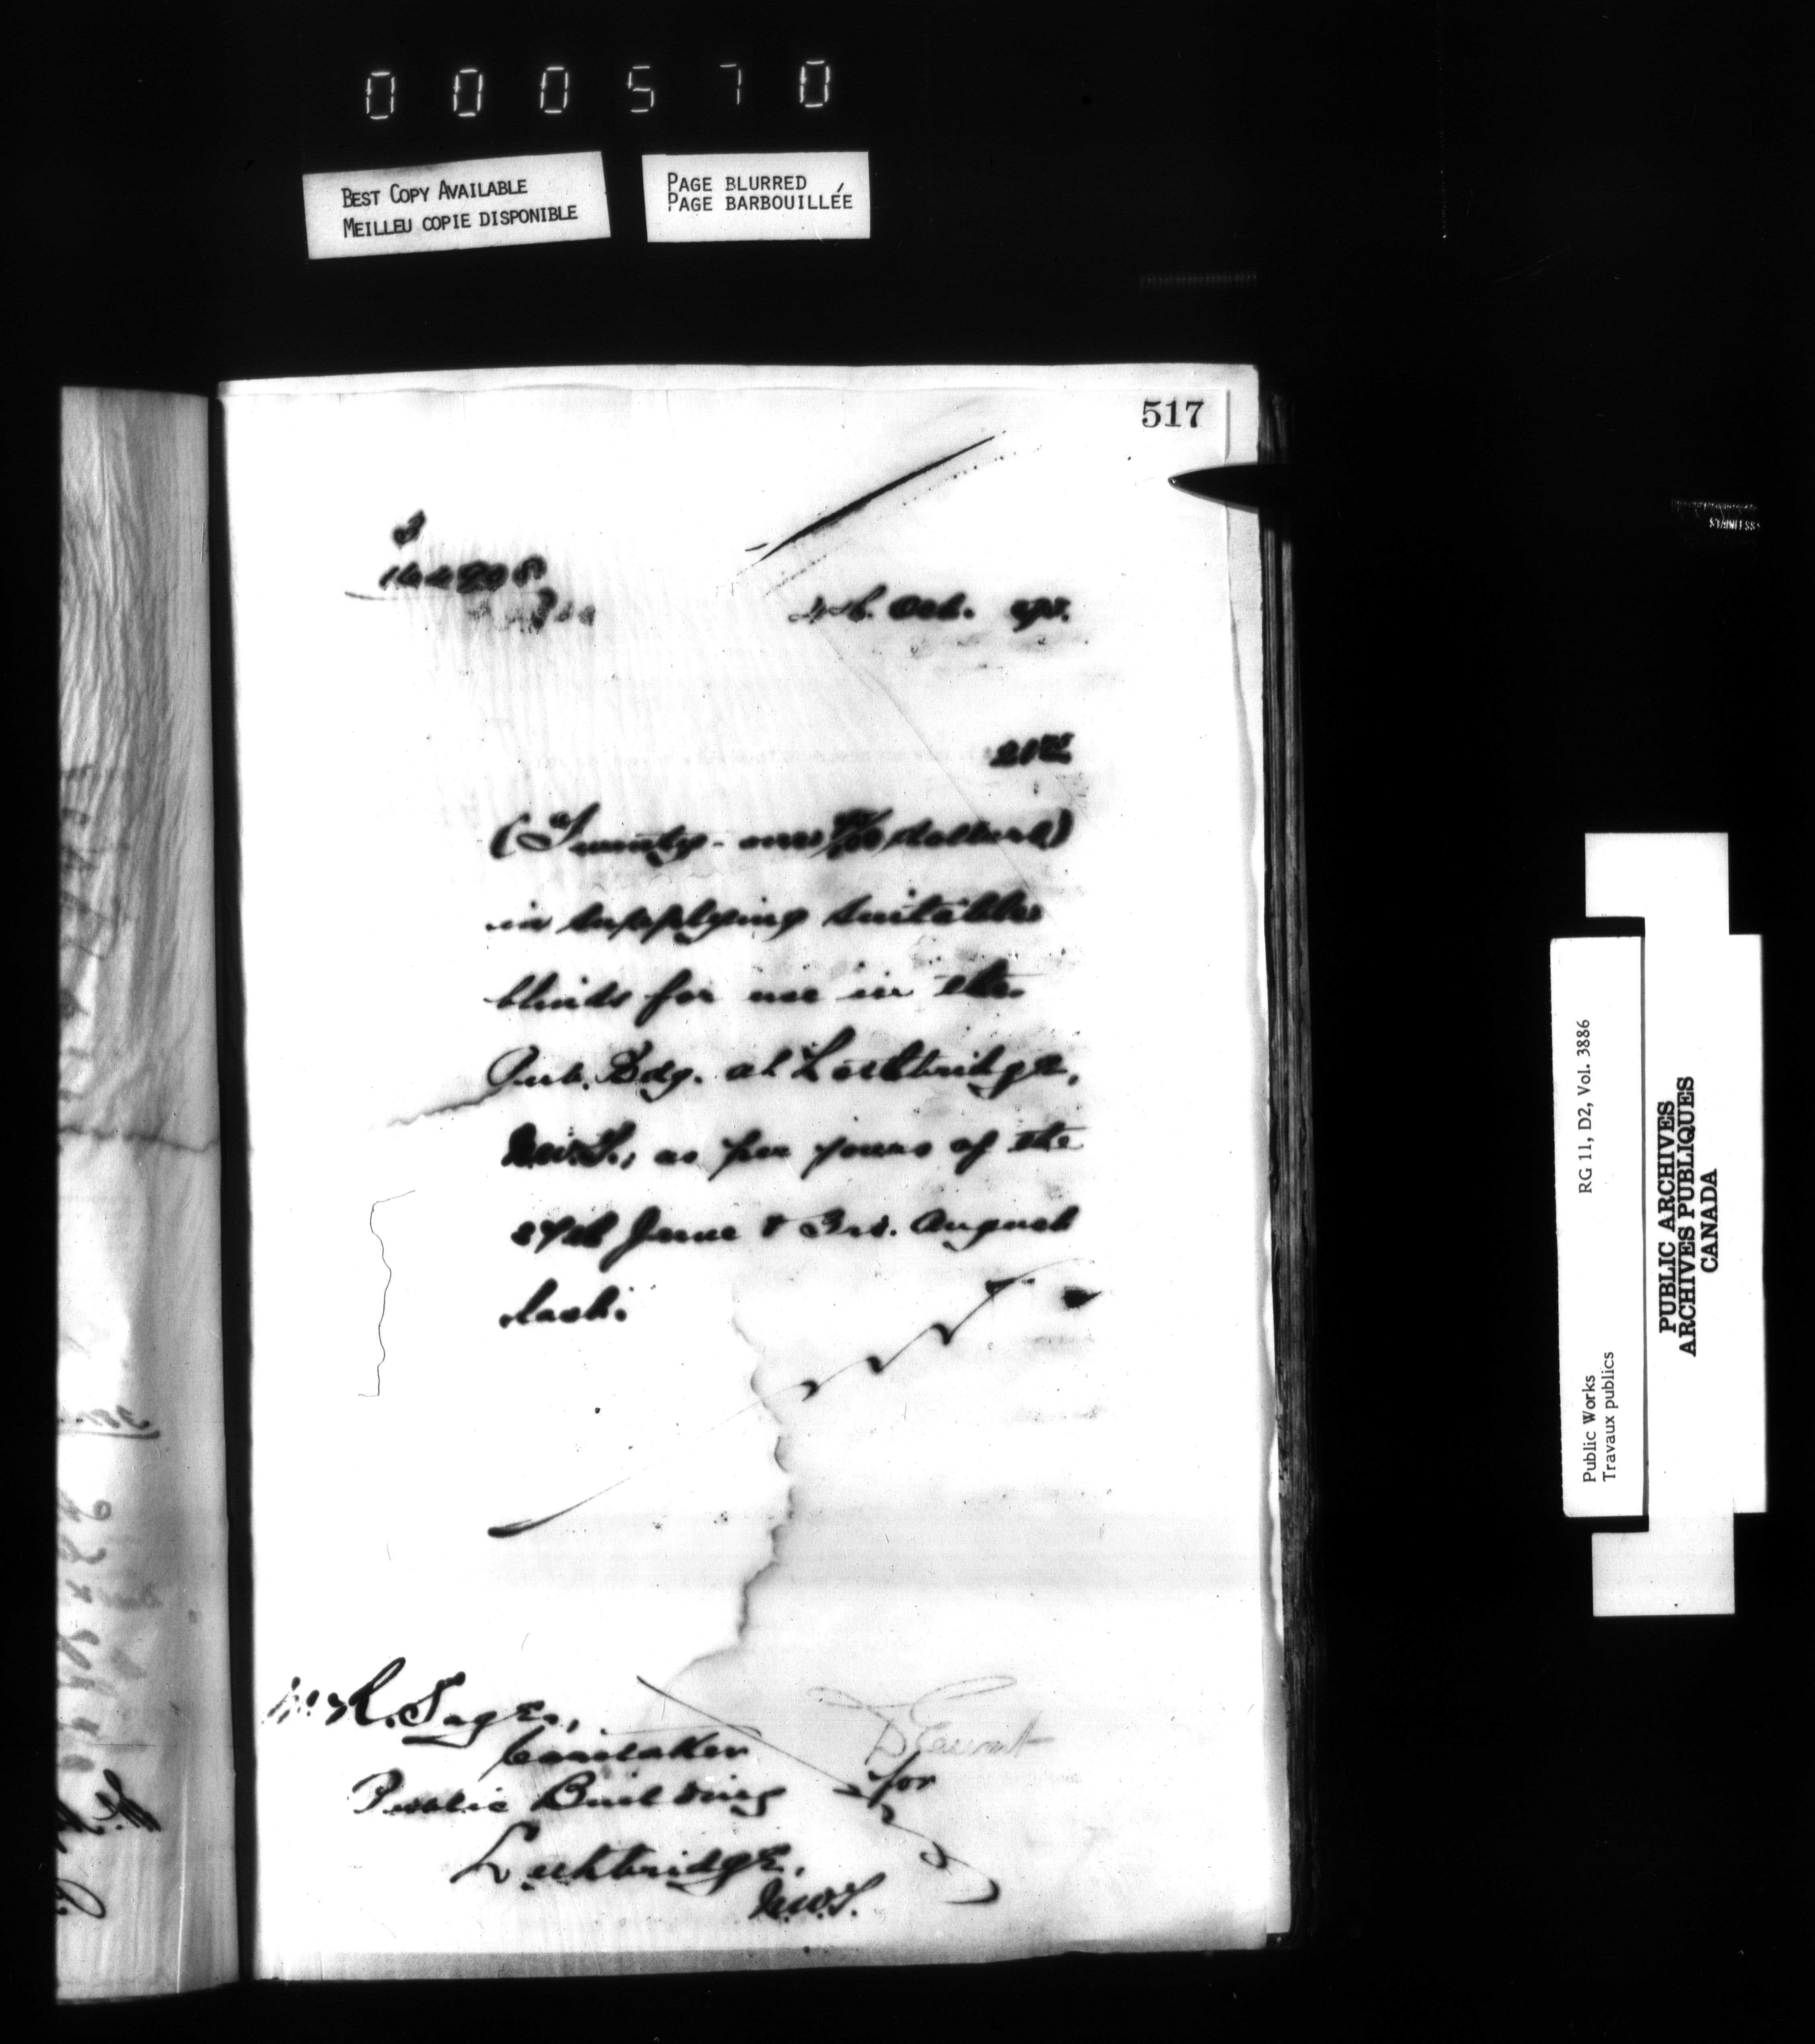 000570
BEST COPY AVAILABLE
MEILLEU COPIE DISPONIBLE
PAGE BLURRED
PAGE BARBOUILLÉE
517
4th. Oct.
(Twenty-one dollars)
in supplying suitable
blinds for use in the
Pub. Bdg. at Lethbridge,
N.W.T., as per yours of the
27th June & 3rd. August
last.
R. Sage,
Caretaker
Public Building
Lethbridge,
N.W.T.
for
STAINLESS
Public Works
Travaux publics
RG 11, D2, Vol. 3886
PUBLIC ARCHIVES
ARCHIVES PUBLIQUES
CANADA